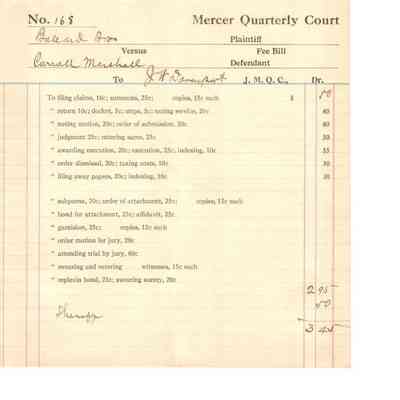 No. 168 Mercer Quarterly Court
Plaintiff
Versus Fee Bill
Carroll Marshall Defendant
To J. M. Q. C., Dr.
To filing claims, 10c; summons, 25c; copies, 15c each $ 50
" return 10c; docket, 5c; steps, 5c; taxing service, 20c 40
" noting motion, 20c; order of submission, 20c 40
" judgment 25c; entering same, 25c 50
" awarding execution, 20c; execution, 25c; indexing, 10c 55
" order dismissal, 20c; taxing costs, 10c 30
" filing away papers, 20c; indexing, 10c 30
" subpoena, 20c; order of attachment, 25c; copies, 15c each
" bond for attachment, 25c; affidavit, 25c
" garnishee, 25c; copies, 15c each
" order motion for jury, 20c
" attending trial by jury, 60c
" swearing and entering witnesses, 15c each
" replevin bond, 25c; swearing surety, 20c
2 95
50
3 45